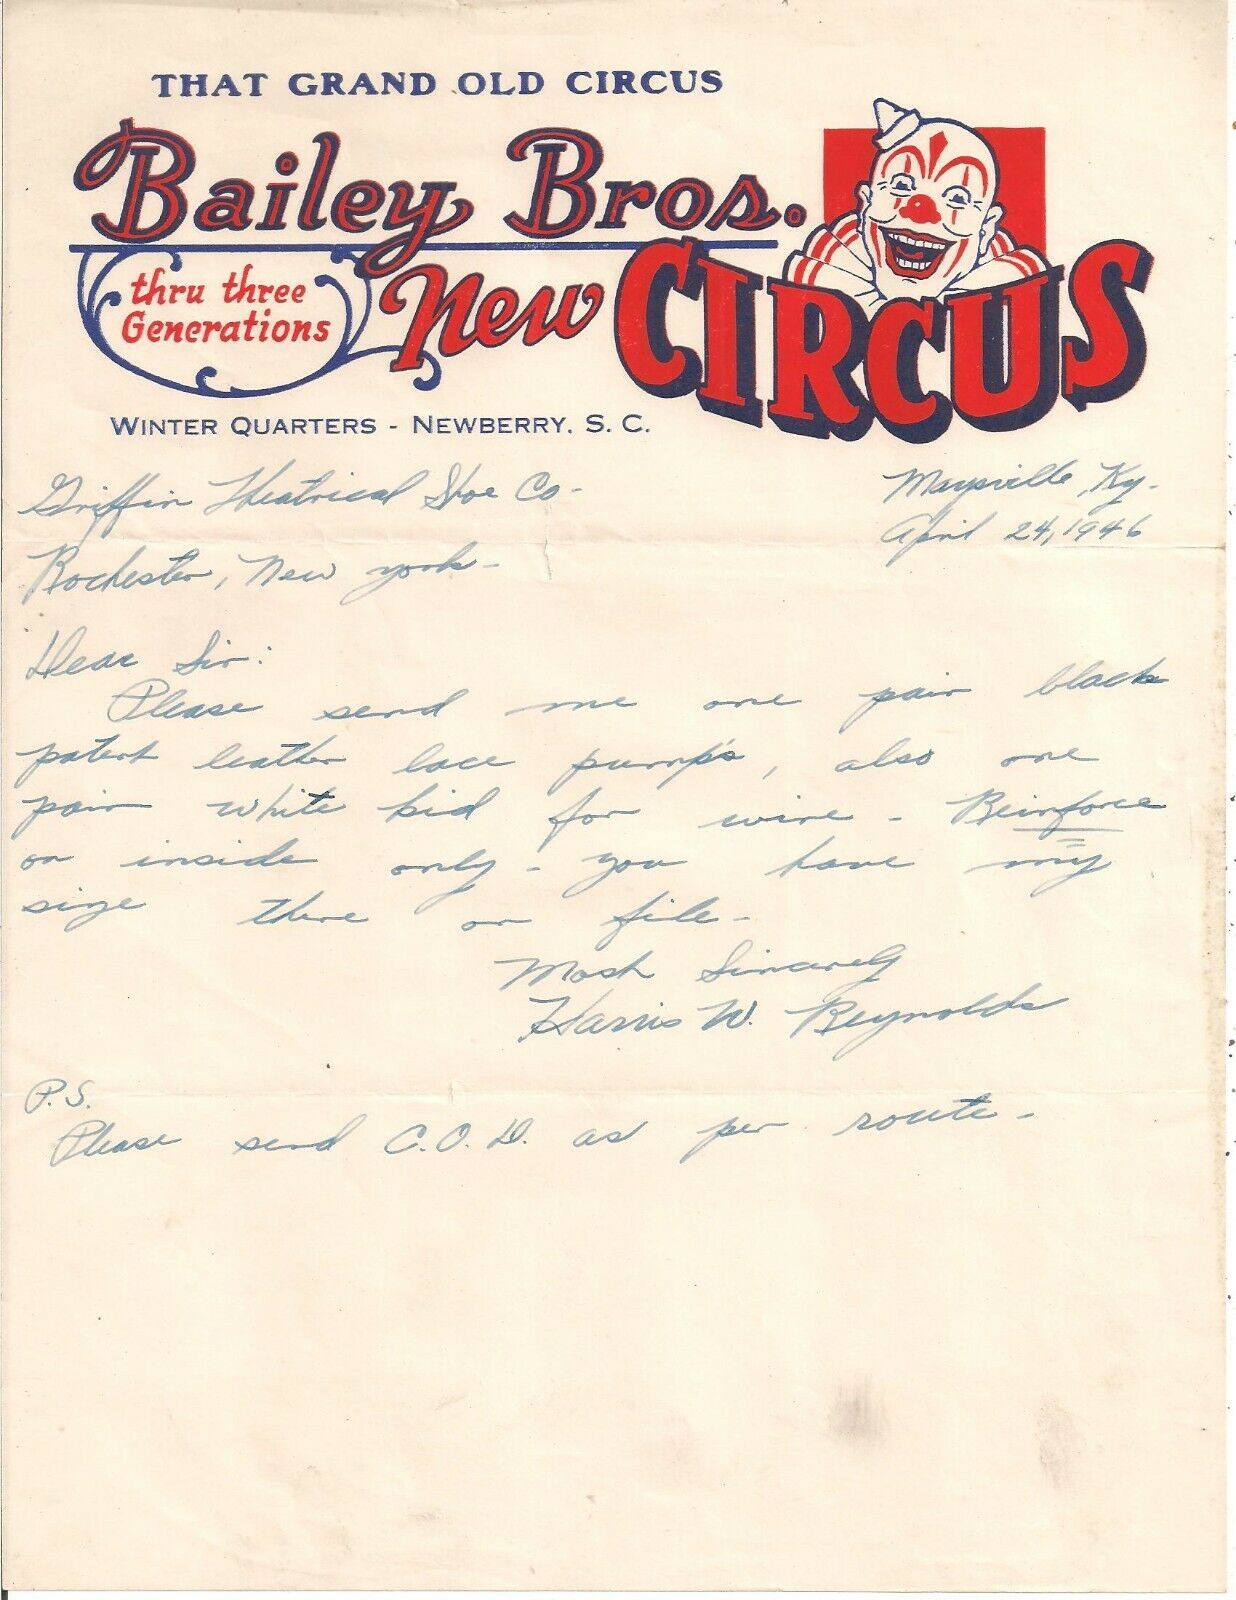 THAT GRAND OLD CIRCUS
Bailey Bros.
thru three
Generations
New CIRCUS
WINTER QUARTERS - NEWBERRY, S. C.
Griffin Theatrical Shoe Co-
Maysville, Ky-
April 24, 1946
Rochester, New York-
Dear Sir:
Please send me one pair black
patent leather lace pump's, also one
pair white kid for wire - Reinforce
on inside only - you have my
size there on file-
Most Sincerely
Harris W. Reynolds
P.S.
Please send C.O.D. as per route-